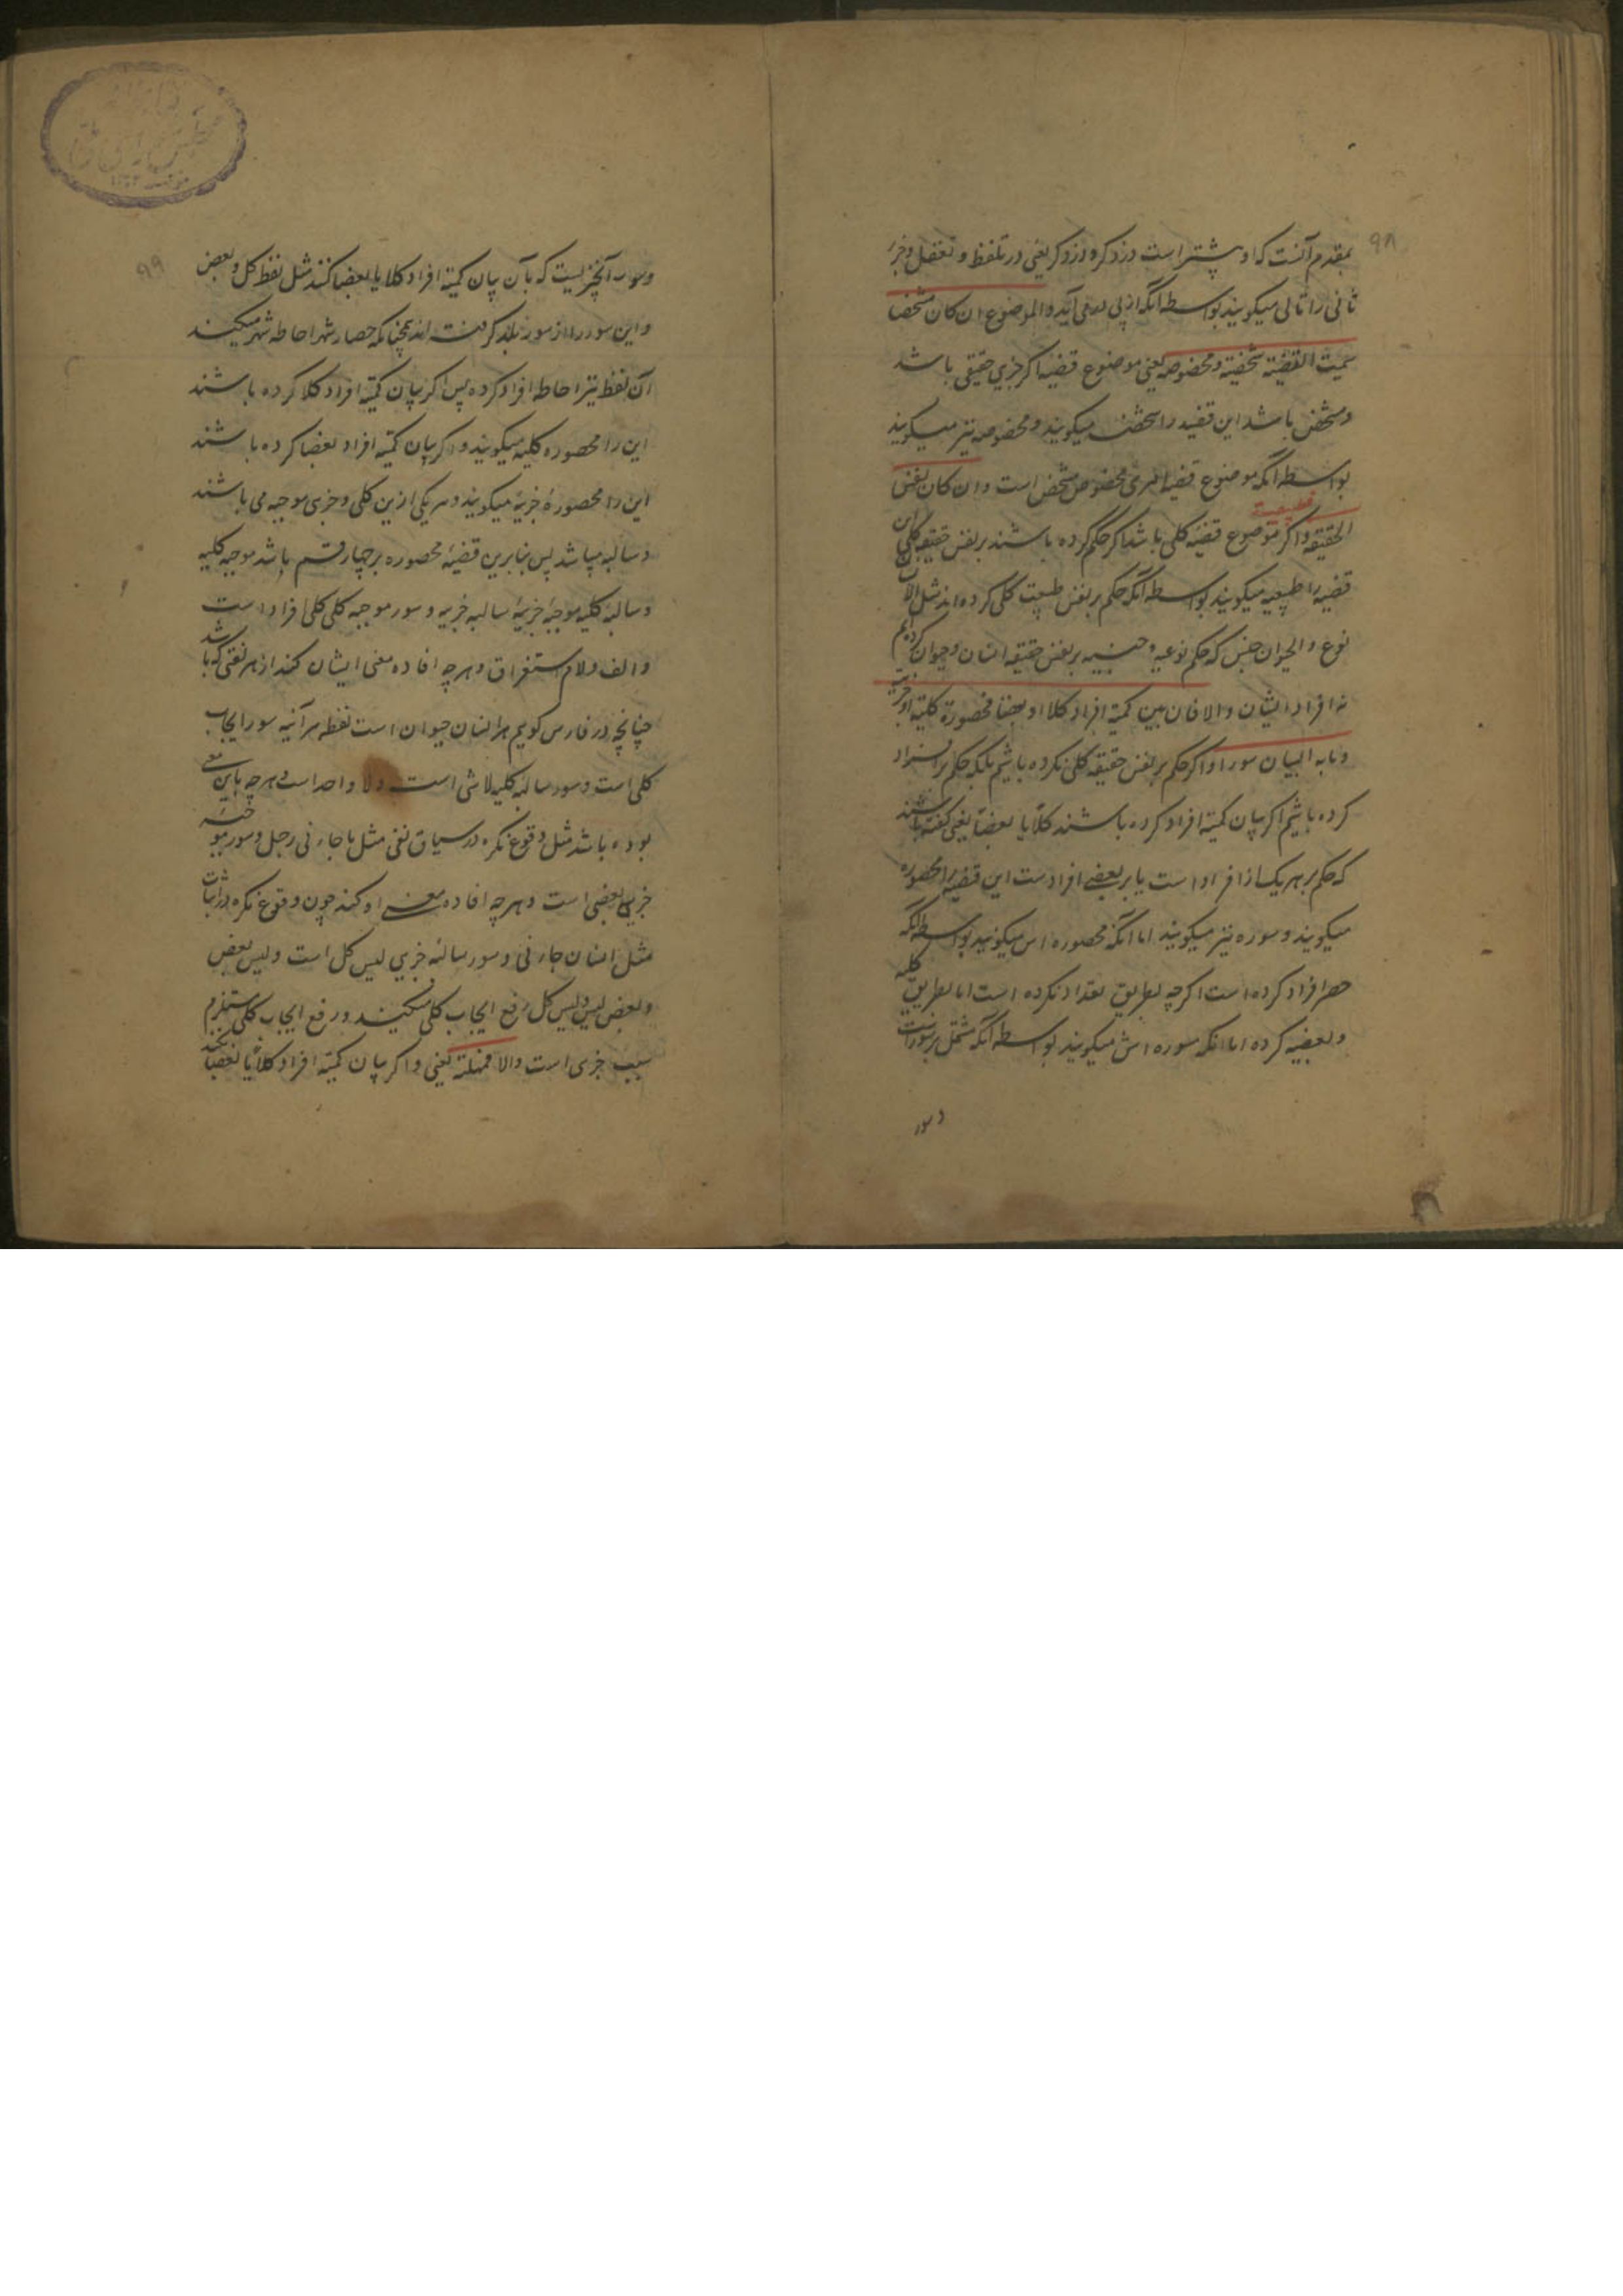 ۹۸
بمقدم آنست که او پیشتر است در ذکر و در ذکر یعنی در تلفظ و تعقل و جزء
ثانی را تالی میکویند بواسطه آنکه از پی او می آید والموضوع ان کان مشخصا
سمیت القضیة شخصیة ومخصوصة یعنی موضوع قضیه اکر جزیی حقیقی باشد
ومشخص باشد این قضیه را شخصیه میکویند ومخصوصه نیز میکویند
بواسطه آنکه موضوع قضیه امری مخصوص مشخص است وان کان نفس
الحقیقة فطبیعیة واکر موضوع قضیه کلی باشد اکر حکم کرده باشند بر نفس حقیقة کلی این
قضیه را طبیعیه میکویند بواسطه آنکه حکم بر نفس طبیعت کلی کرده اند مثل الانسان
نوع و الحیوان جنس که حکم نوعیه و جنسیه بر نفس حقیقة انسان وحیوان کردیم
نه افراد ایشان والا فان بین کمیة افراده کلا او بعضا فمحصورة کلیة او جزیة
ومابه البیان سورا واکر حکم بر نفس حقیقة کلی نکرده باشیم بلکه حکم بر افراد
کرده باشیم اکر بیان کمیة افراد کرده باشند کلا یا بعضا یعنی کفته باشند
که حکم بر هر یک از افراد است یا بر بعضی افرادست این قضیه را محصوره
میکویند ومسوره نیز میکویند اما آنکه محصوره اش میکویند بواسطه آنکه
حصر افراد کرده است اکرچه بطریق تعداد نکرده است اما بطریق کلیه
وبعضیه کرده اما انکه مسوره اش میکویند بواسطه آنکه مشتمل بر سورات
وسور
۹۹
وسور آنچیزیست که بآن بیان کمیة افراد کلا یا بعضا کنند مثل لفظ کل وبعض
واین سور را از سور بلد کرفته اند همچنانکه حصار شهر احاطه شهر میکند
آن لفظ نیز احاطه افراد کرده پس اکر بیان کمیة افراد کلا کرده باشند
این را محصوره کلیه میکویند واکر بیان کمیة افراد بعضا کرده باشند
این را محصورهٔ جزیه میکویند وهر یکی ازین کلی وجزی موجبه می باشند
وسالبه میباشد پس بنابرین قضیهٔ محصوره بر چهار قسم باشد موجبه کلیه
وسالبه کلیه موجبهٔ جزییهٔ سالبه جزییه وسور موجبه کلی کل افراد است
والف ولام استغراق وهرچه افاده معنی ایشان کند از هر لغتی که باشد
چنانچه در فارسی کوییم هر انسان حیوان است لفظ هر آینه سور ایجاب
کلی است وسور سالبه کلیه لاشی است ولا واحد است وهرچه باین معنی
بوده باشد مثل وقوع نکره در سیاق نفی مثل ماجاءنی رجل وسور موجبه
جزیی بعض است وهرچه افاده معنی او کند چون وقوع نکره در اثبات
مثل انسان جاءنی وسور سالبه جزیی لیس کل است ولیس بعض
وبعض لیس ولیس کل رفع ایجاب کلی میکند ورفع ایجاب کلی مستلزم
سلب جزی است والا فمهملة یعنی واکر بیان کمیة افراد کلا یا بعضا نکند